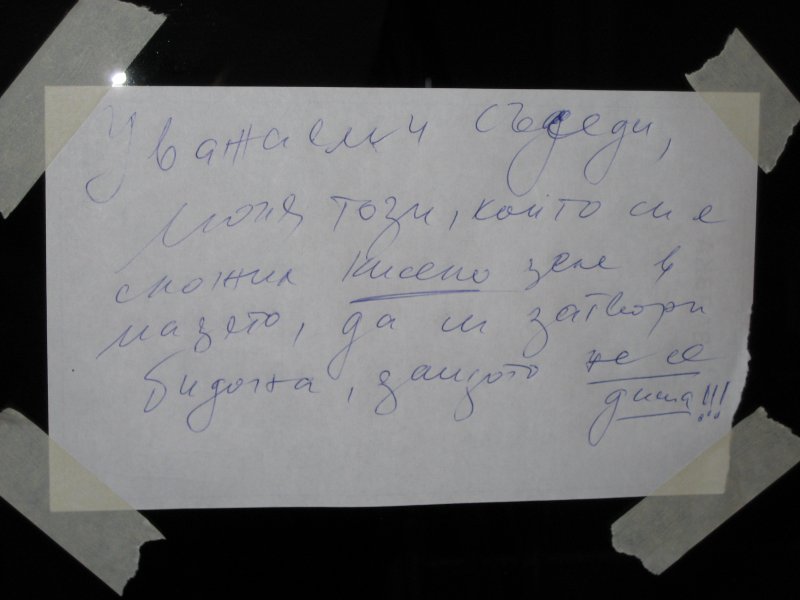 Уважаеми съседи,
Моля този, който си е
сложил кисело зеле в
мазето, да си затвори
бидона, защото не се
диша!!!